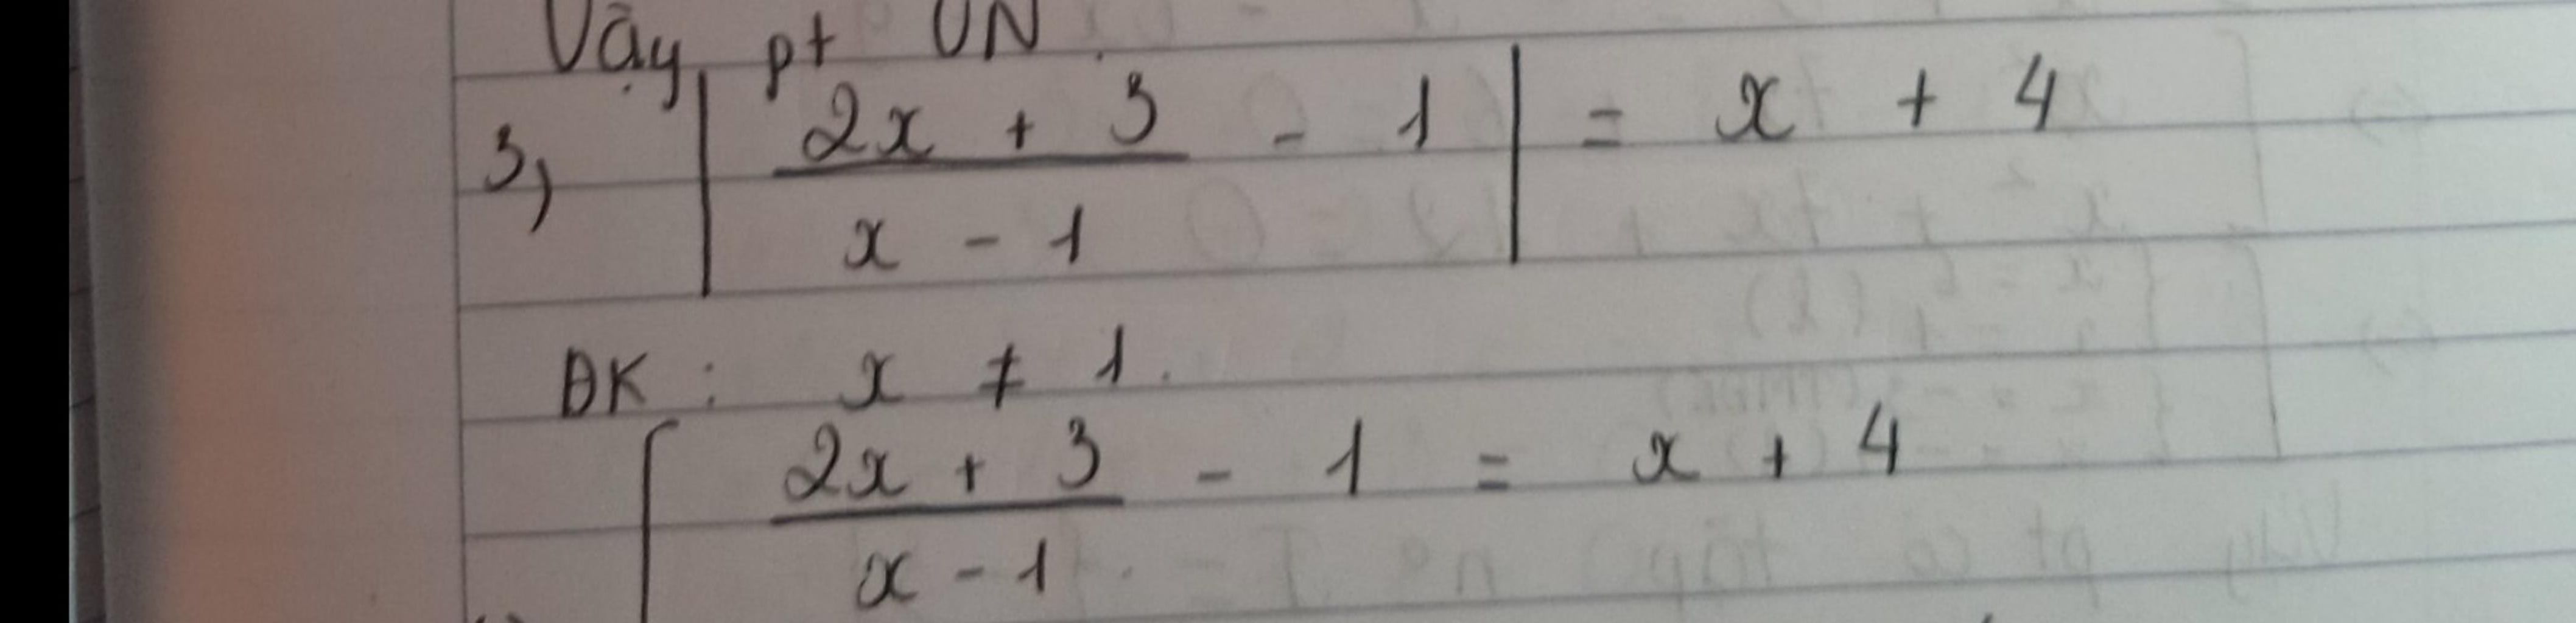 Vậy pt VN.
3, | (2x + 3)/(x - 1) - 1 | = x + 4
ĐK: x ≠ 1.
[ (2x + 3)/(x - 1) - 1 = x + 4